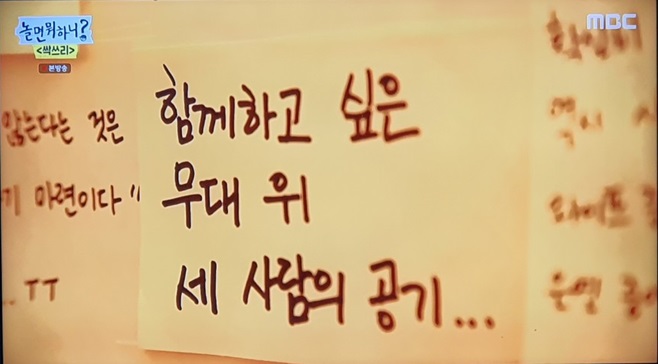 놀면뭐하니?
<싹쓰리>
본방송
MBC
않는다는 것은
기 마련이다"
...TT
함께하고 싶은
무대 위
세 사람의 공기...